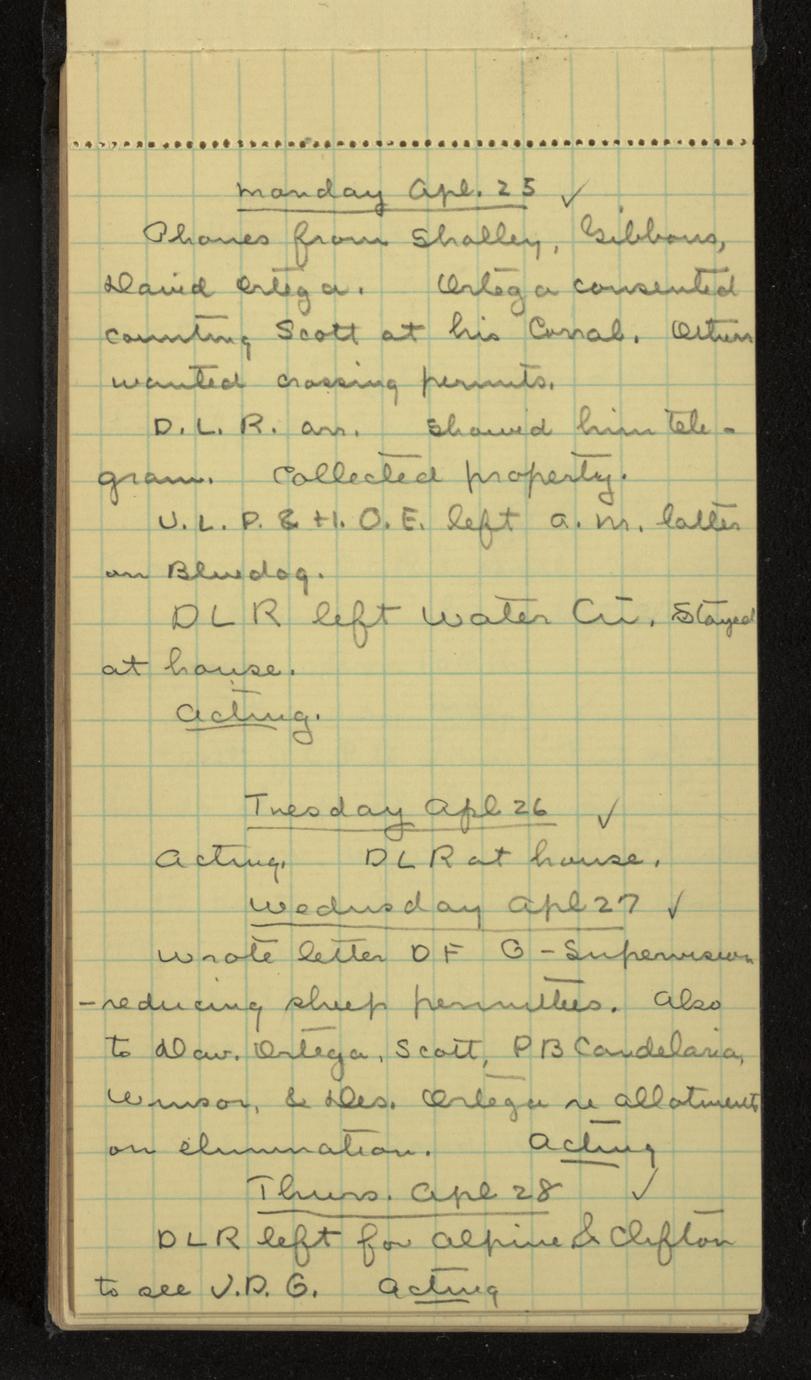 Monday Apl. 25 ✓
Phones from Sholley, Gibbons,
David Ortega. Ortega consented
counting Scott at his Corral. Others
wanted crossing permits.
D. L. R. arr. Showed him tele-
gram. Collected property.
J. L. P. & H. O. E. left a. m. latter
on Bluedog.
DLR left Water Cn. Stayed
at house.
Acting.
Tuesday Apl 26 ✓
Acting. DLR at house.
Wednsday Apl 27 ✓
Wrote letter DF G - Supervision
- reducing sheep permittees. Also
to Dav. Ortega, Scott, P B Candelaria,
Winsor, & Des. Ortega re allotments
on elimination. Acting
Thurs. Apl 28 ✓
DLR left for Alpine & Clifton
to see J. D. G. Acting